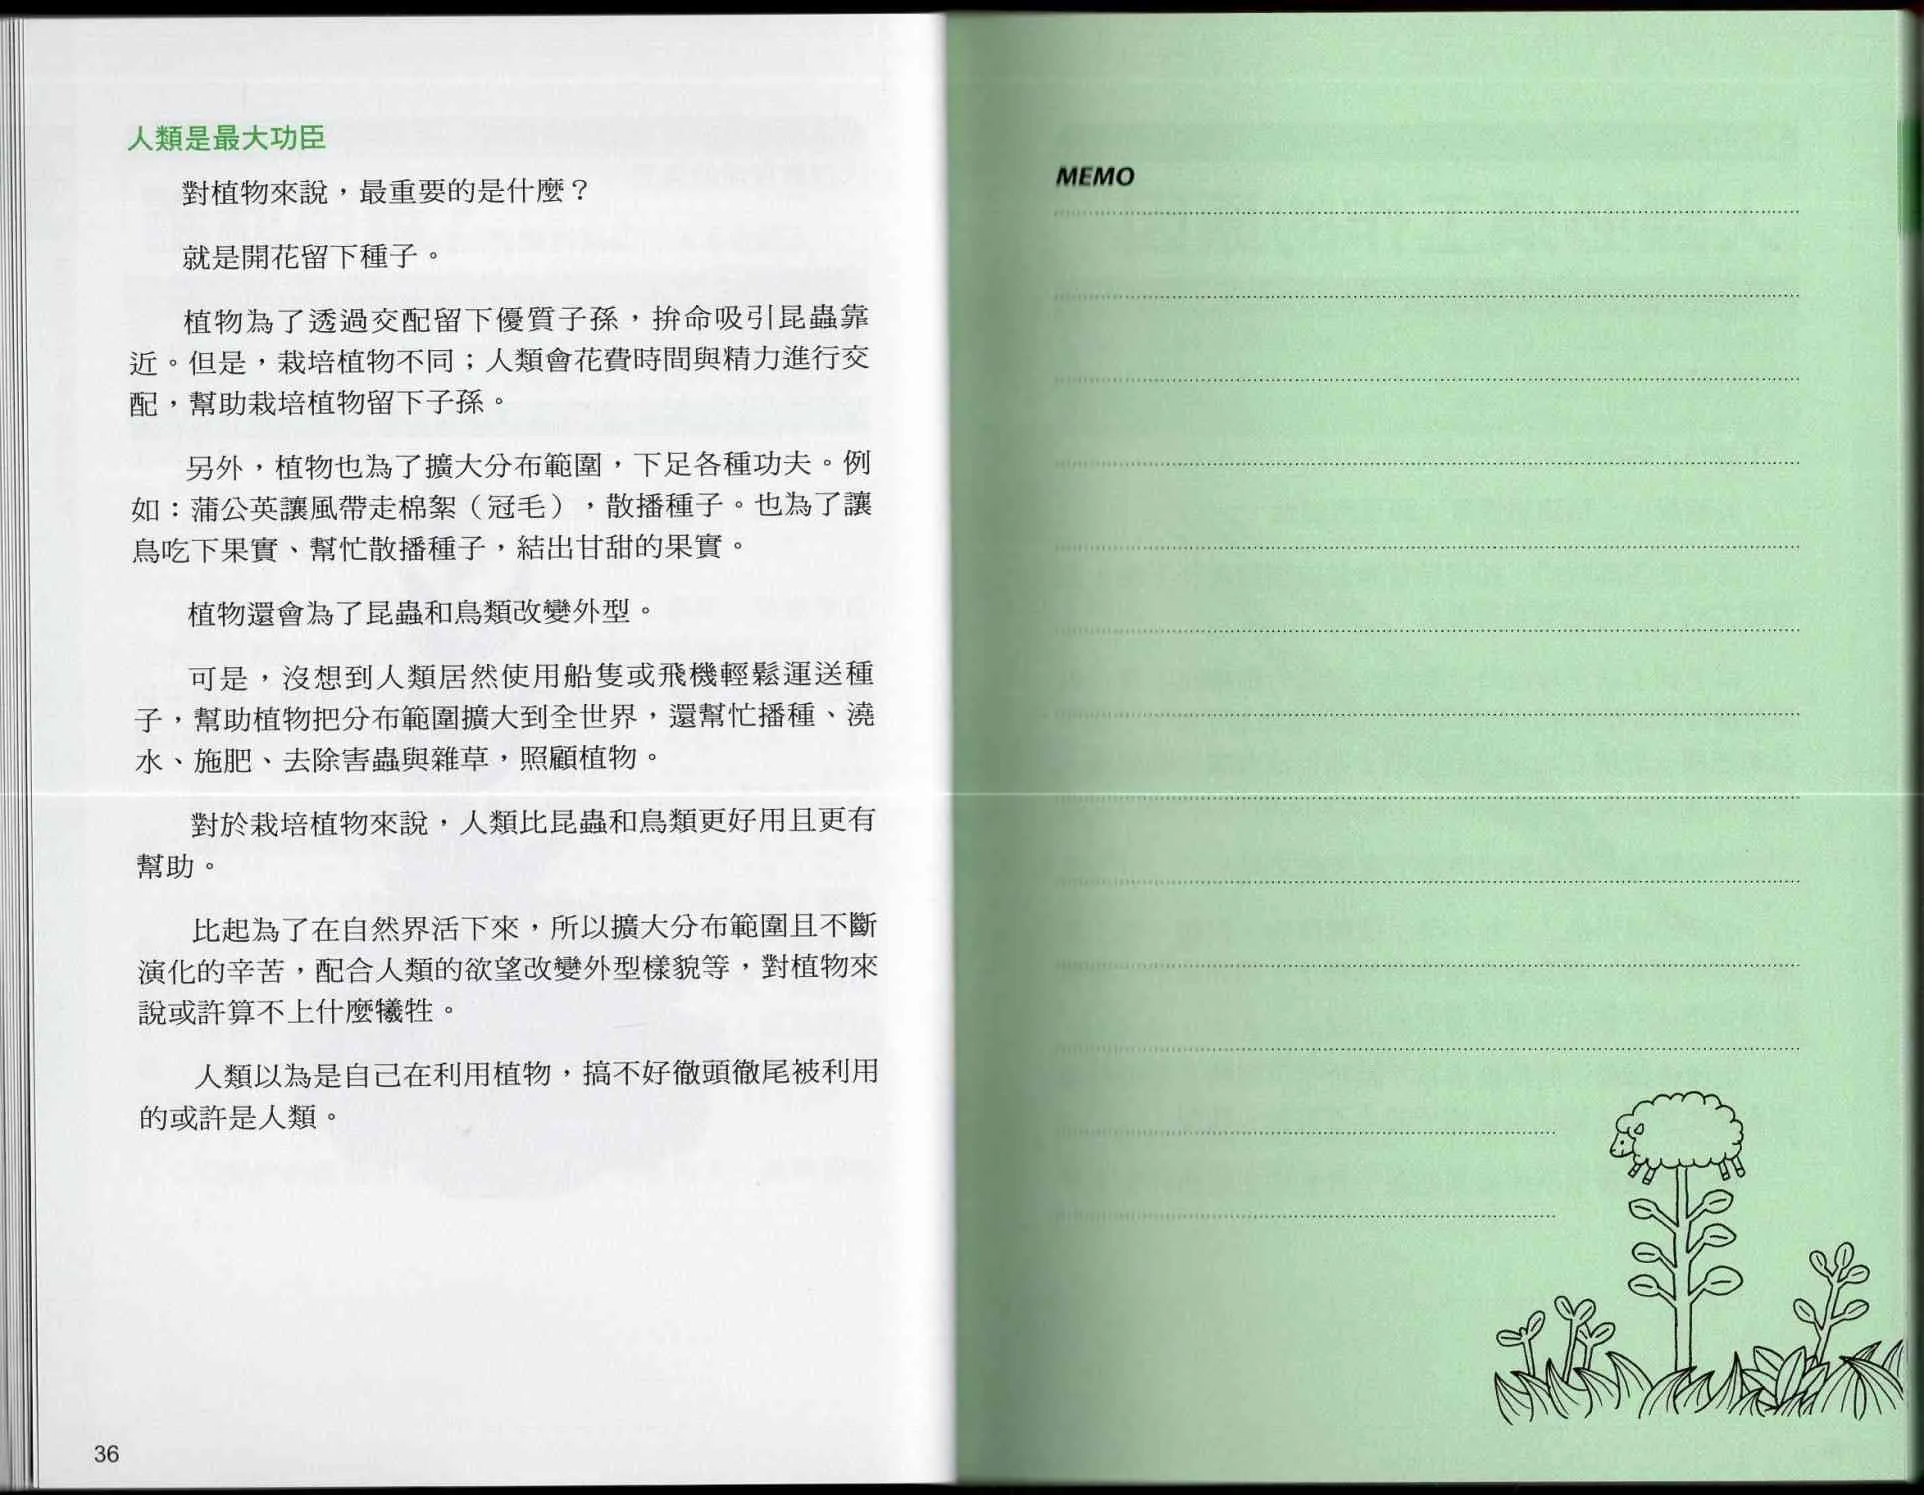 人類是最大功臣
對植物來說，最重要的是什麼？
就是開花留下種子。
植物為了透過交配留下優質子孫，拚命吸引昆蟲靠
近。但是，栽培植物不同；人類會花費時間與精力進行交
配，幫助栽培植物留下子孫。
另外，植物也為了擴大分布範圍，下足各種功夫。例
如：蒲公英讓風帶走棉絮（冠毛），散播種子。也為了讓
鳥吃下果實、幫忙散播種子，結出甘甜的果實。
植物還會為了昆蟲和鳥類改變外型。
可是，沒想到人類居然使用船隻或飛機輕鬆運送種
子，幫助植物把分布範圍擴大到全世界，還幫忙播種、澆
水、施肥、去除害蟲與雜草，照顧植物。
對於栽培植物來說，人類比昆蟲和鳥類更好用且更有
幫助。
比起為了在自然界活下來，所以擴大分布範圍且不斷
演化的辛苦，配合人類的欲望改變外型樣貌等，對植物來
說或許算不上什麼犧牲。
人類以為是自己在利用植物，搞不好徹頭徹尾被利用
的或許是人類。
36
MEMO